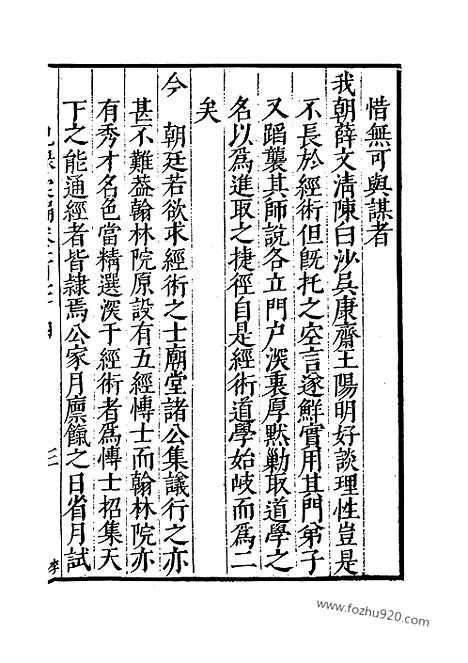 惜無可與謀者
我朝薛文清陳白沙吳康齋王陽明好談理性豈是
不長於經術但旣托之空言遂鮮實用其門弟子
又蹈襲其師說各立門户深衷厚默勦取道學之
名以爲進取之捷徑自是經術道學始岐而爲二
矣
今 朝廷若欲求經術之士廟堂諸公集議行之亦
甚不難葢翰林院原設有五經博士而翰林院亦
有秀才名色當精選深于經術者爲博士招集天
下之能通經者皆隷焉公家月廪餼之日省月試
三
www.fozhu920.com